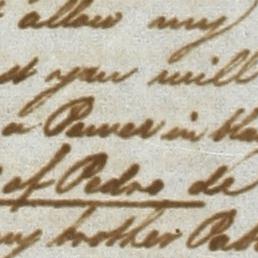 allow my
you will
a Power in bla
of Pedro de
my brother Pab